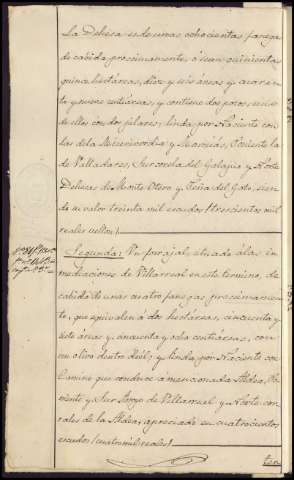 La Dehesa es de unas ochocientas fanegas
de cabida proximamente, ó sean quinientas
quince hectáreas, diez y seis áreas y cuaren-
ta y nueve centiáreas, y contiene dos pozos, uno
de ellos con dos pilares; linda por Naciente con
las de la Misericordia y Poniente la
de Valladares, Sur con la del Galapar y Norte
Dehesas de Monte Otero y Peña del Gato, sien-
do su valor treinta mil escudos (trescientos mil
reales vellon)
Segunda: Un situado á las in-
mediaciones de Villarreal en este termino, de
cabida de unas cuatro fanegas proximamen-
te, que equivalen á dos hectáreas, cincuenta y
siete áreas y cincuenta y ocho centiáreas, con
un olivo dentro de él; y linda por Naciente con
Camino que conduce á mencionada Aldea, Po-
niente y Sur Arroyo de Villarreal y Norte cor-
rales de la Aldea; apreciado en cuatrocientos
escudos (cuatro mil reales)
ter